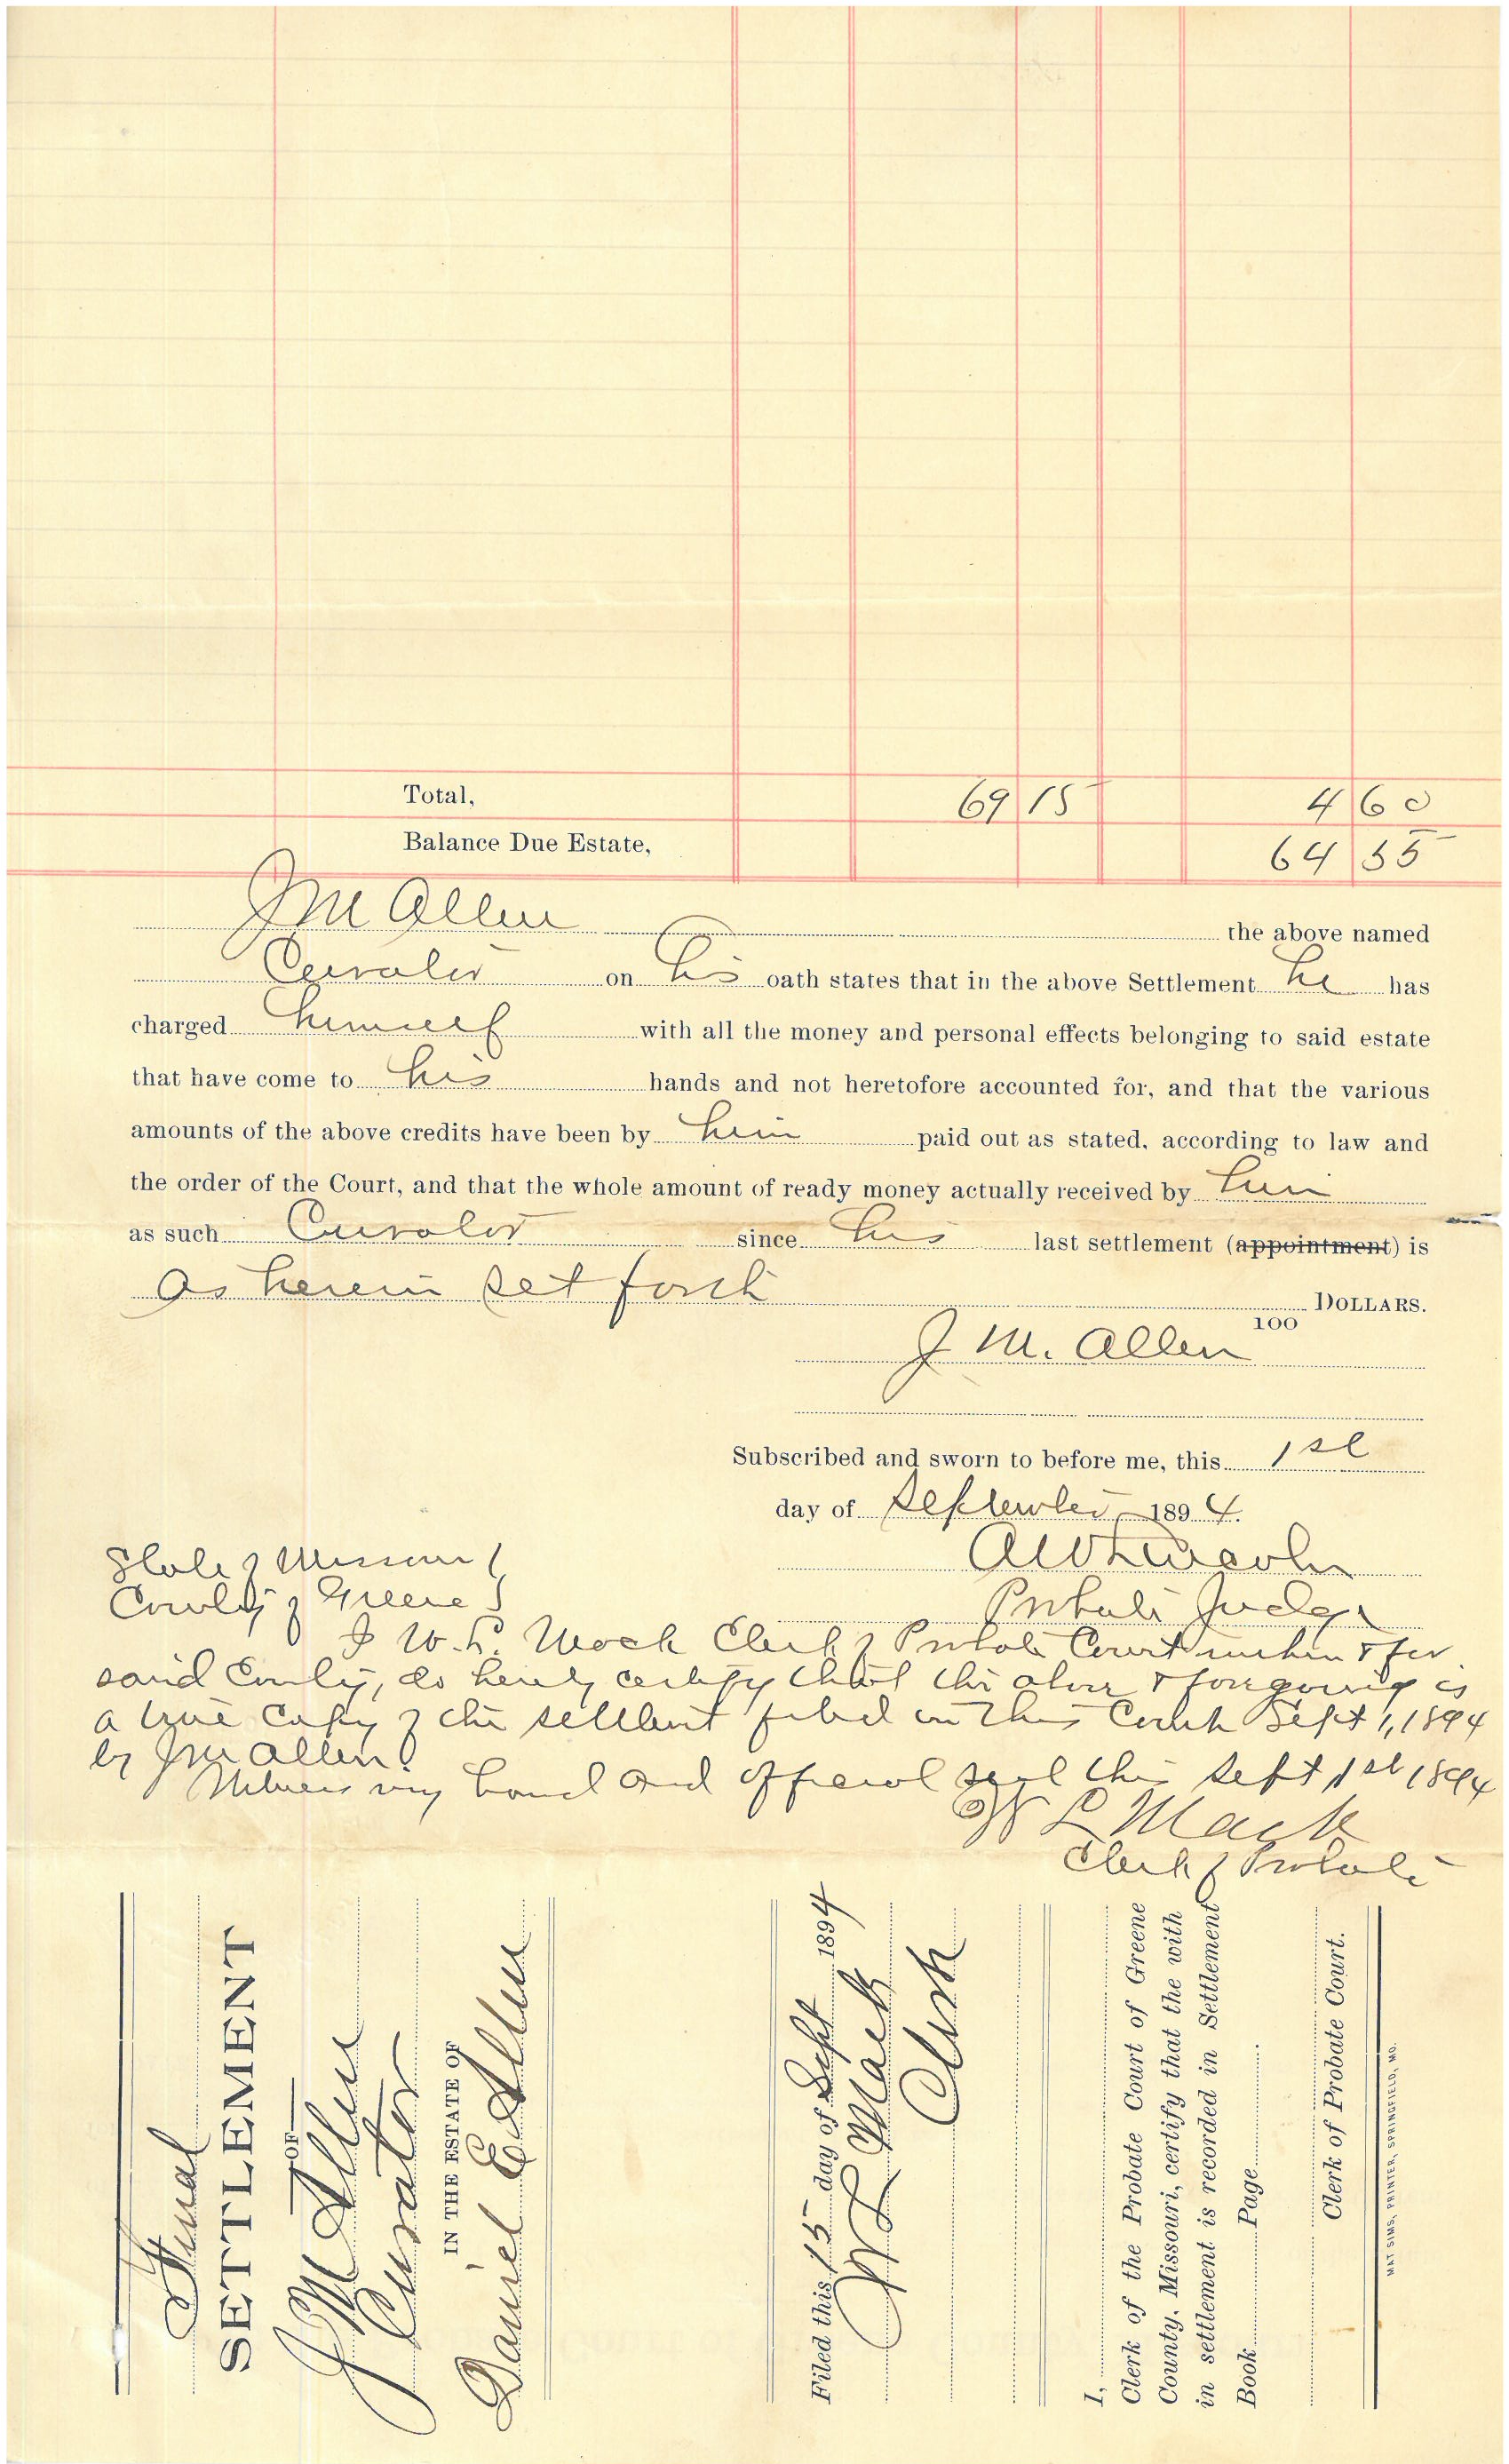 Total, 69 15 4 60
Balance Due Estate, 64 55
J M Allen the above named
Curator on his oath states that in the above Settlement he has
charged himself with all the money and personal effects belonging to said estate
that have come to his hands and not heretofore accounted for, and that the various
amounts of the above credits have been by him paid out as stated, according to law and
the order of the Court, and that the whole amount of ready money actually received by him
as such Curator since his last settlement (appointment) is
as herein set forth DOLLARS.
100
J. M. Allen
Subscribed and sworn to before me, this 1st
day of September 1894.
A W Lincoln
Probate Judge
State of Missouri
County of Greene
I W. L. Mack Clerk of Probate Court within & for
said County, do hereby certify that the above & foregoing is
a true Copy of the settlement filed in this Court Sept 1, 1894
by J M Allen.
Witness my hand and official seal this Sept 1st 1894
W L Mack
Clerk of Probate
Final
SETTLEMENT
OF
J M Allen
Curator
IN THE ESTATE OF
Daniel E Allen
Filed this 15 day of Sept 1894
W L Mack
Clerk
I,
Clerk of the Probate Court of Greene
County, Missouri, certify that the with
in settlement is recorded in Settlement
Book Page .
Clerk of Probate Court.
MAT SIMS, PRINTER, SPRINGFIELD, MO.